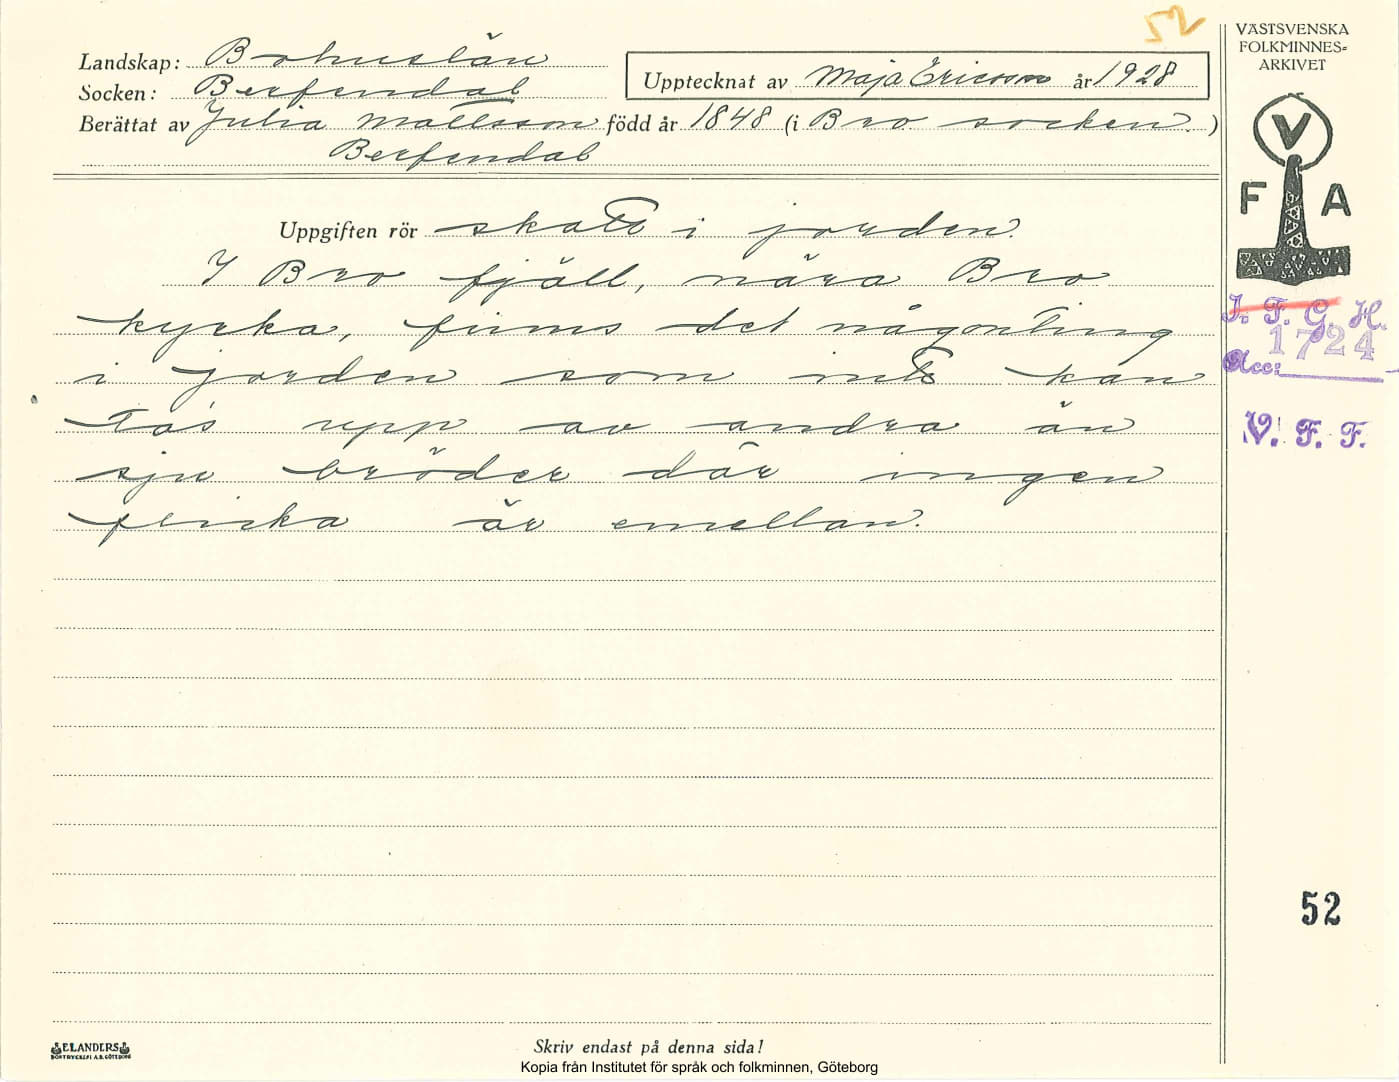 52
VÄSTSVENSKA
FOLKMINNES=
ARKIVET
Landskap: Bohuslän
Socken: Berfendal
Upptecknat av Maja Ericsson år 1928
Berättat av Julia Mattsson född år 1848 (i Bro socken.)
Berfendal
V
F A
Uppgiften rör skatt i jorden.
I Bro fjäll, nära Bro
kyrka, finns det någonting
i jorden som inte kan
tas upp av andra än
sju bröder där ingen
flicka är emellan.
I. F. G. H.
1724
Acc:
V. F. F.
52
ELANDERS
BOKTRYCKERI A.B. GÖTEBORG
Skriv endast på denna sida!
Kopia från Institutet för språk och folkminnen, Göteborg